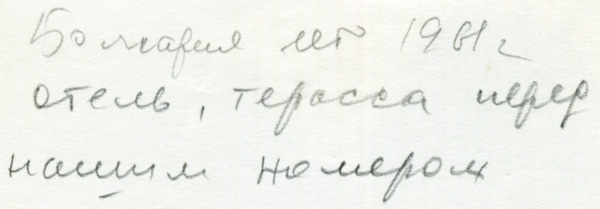 Болгария лето 1981г
отель, терасса перед
нашим номером